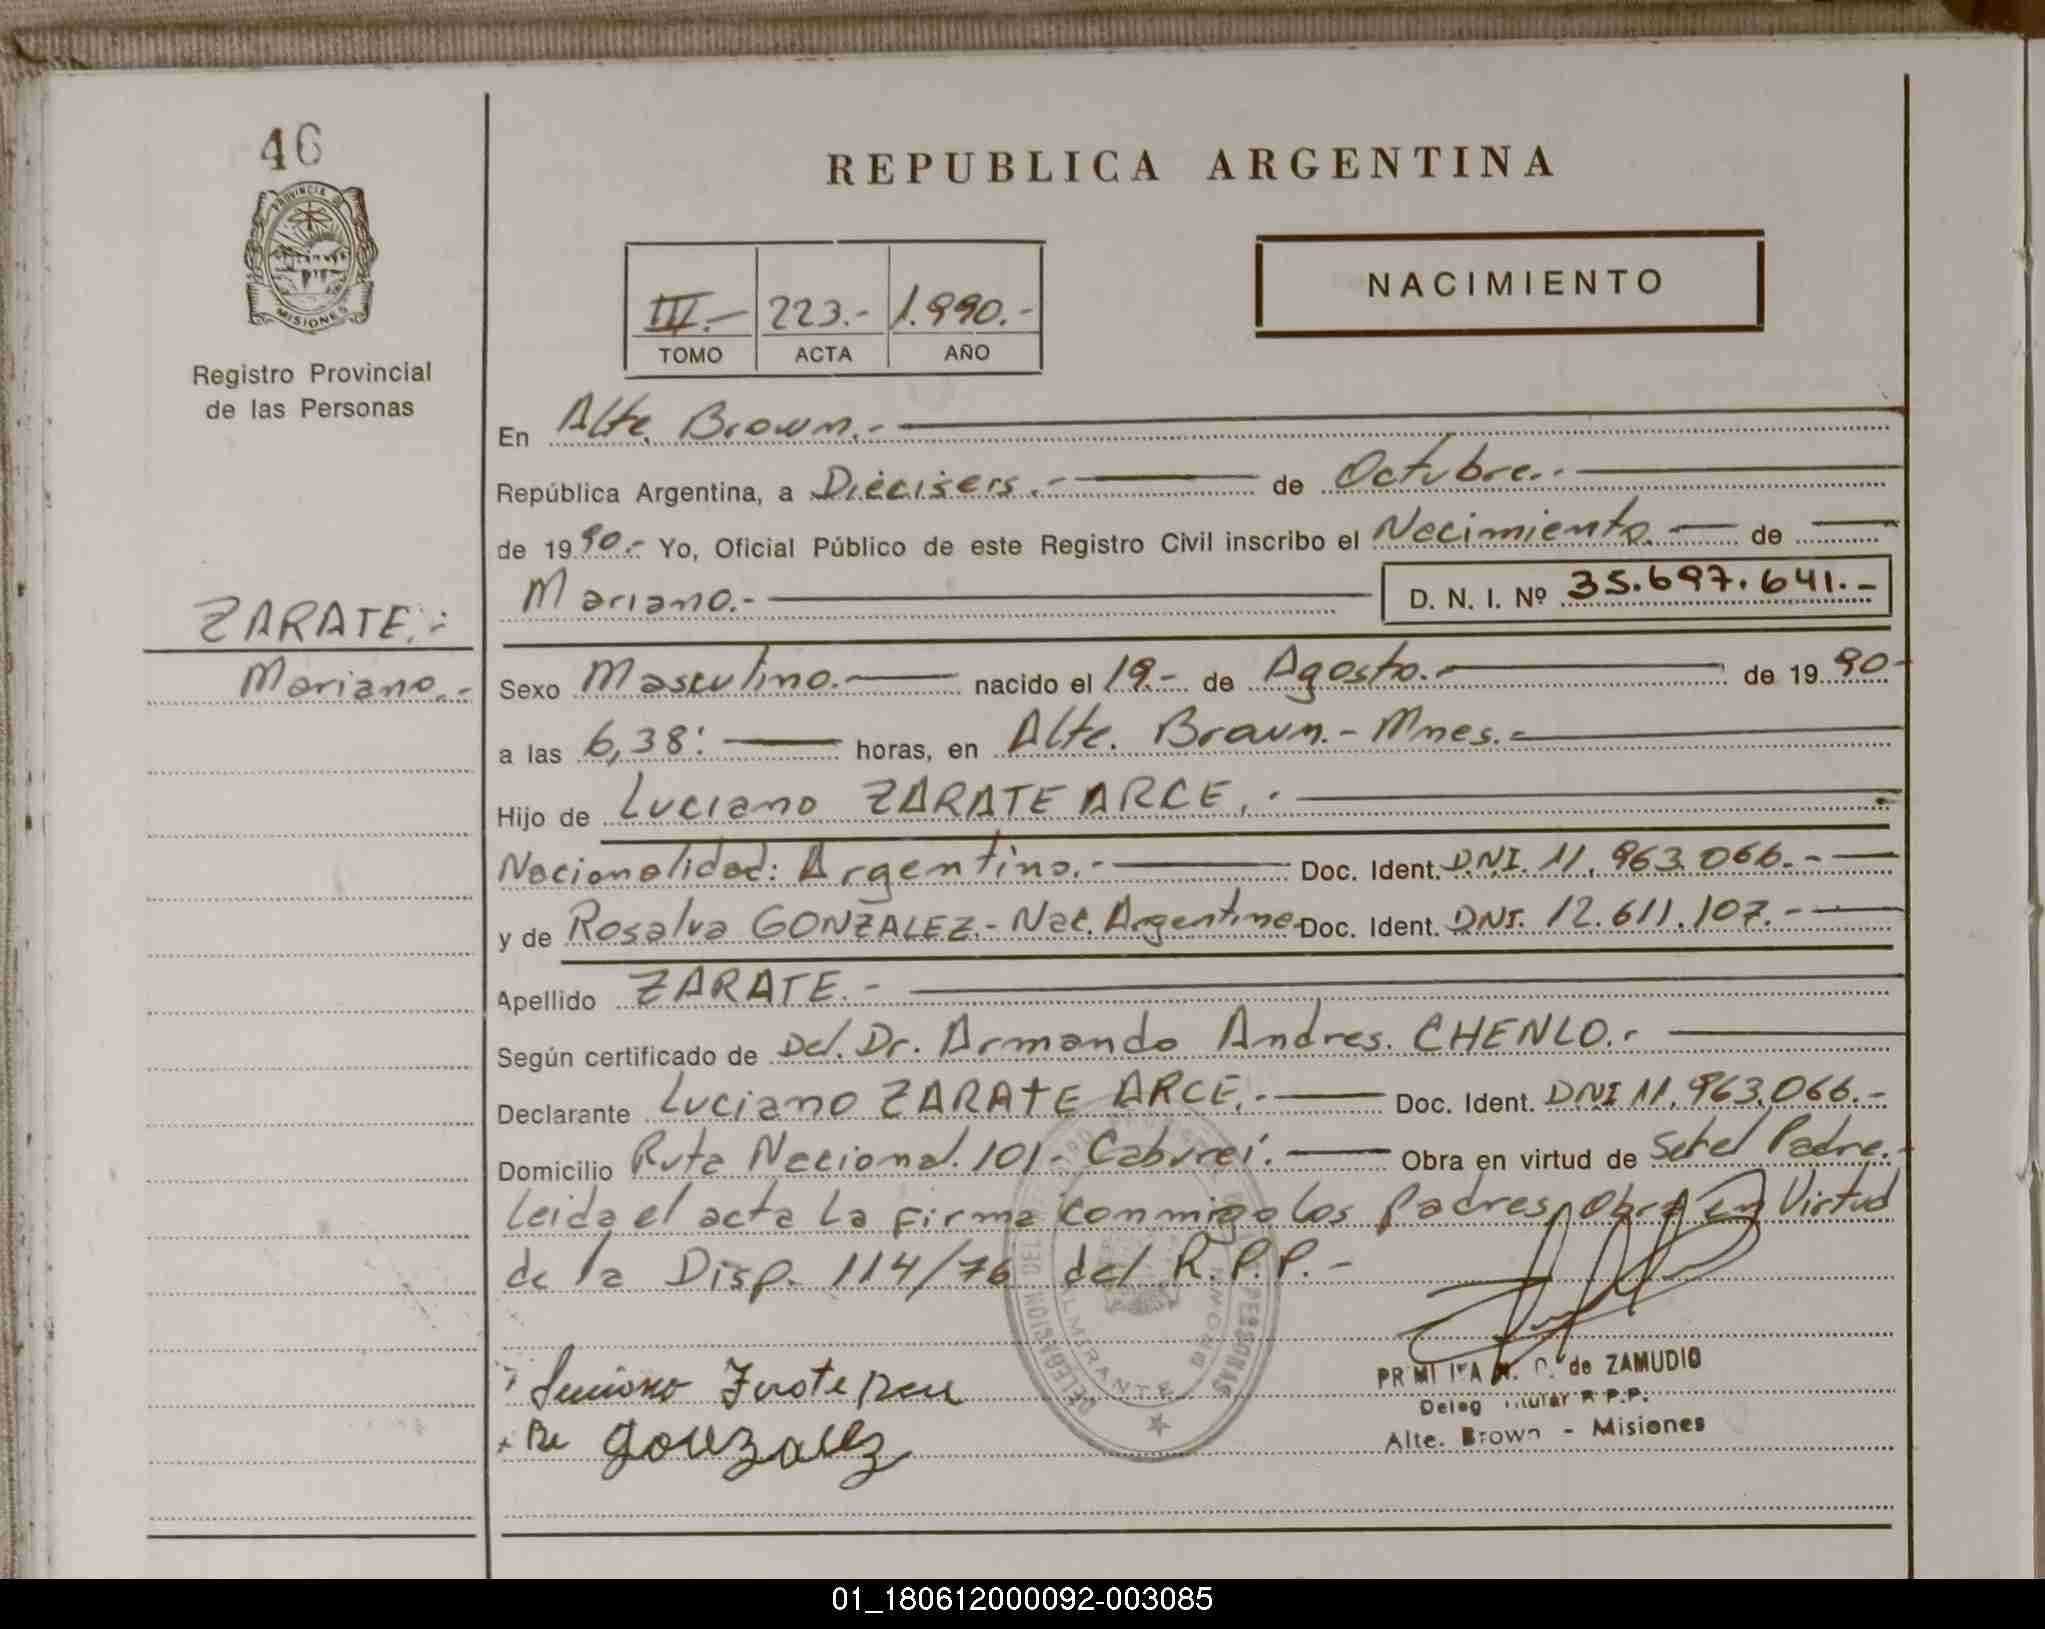 46
PROVINCIA DE
MISIONES
Registro Provincial
de las Personas
ZARATE.-
Mariano.-
REPUBLICA ARGENTINA
III.- 223.- 1.990.-
TOMO ACTA AÑO
NACIMIENTO
En Alte. Brown.-
República Argentina, a Dieciseis.- de Octubre.-
de 1990.- Yo, Oficial Público de este Registro Civil inscribo el Nacimiento.- de
Mariano.- D. N. I. Nº 35.697.641.-
Sexo Masculino.- nacido el 19.- de Agosto.- de 1990-
a las 6,38: horas, en Alte. Brown.- Mnes.-
Hijo de Luciano ZARATE ARCE.-
Nacionalidad: Argentino.- Doc. Ident. DNI. 11.963.066.-
y de Rosalva GONZALEZ.- Nac. Argentina Doc. Ident. DNI. 12.611.107.-
Apellido ZARATE.-
Según certificado de Del. Dr. Armando Andres. CHENLO.-
Declarante Luciano ZARATE ARCE.- Doc. Ident. DNI 11.963.066.-
Domicilio Ruta Nacional. 101- Caburei.- Obra en virtud de Ser el Padre.-
Leida el acta La firma conmigo Los Padres, Obra en Virtud
de la Disp. 114/76 del R.P.P.-
DELEGACION DEL PERSONAS
ALMIRANTE BROWN
de ZAMUDIO
Deleg Titular R.P.P.
Alte. Brown - Misiones
Gonzalez
01_180612000092-003085